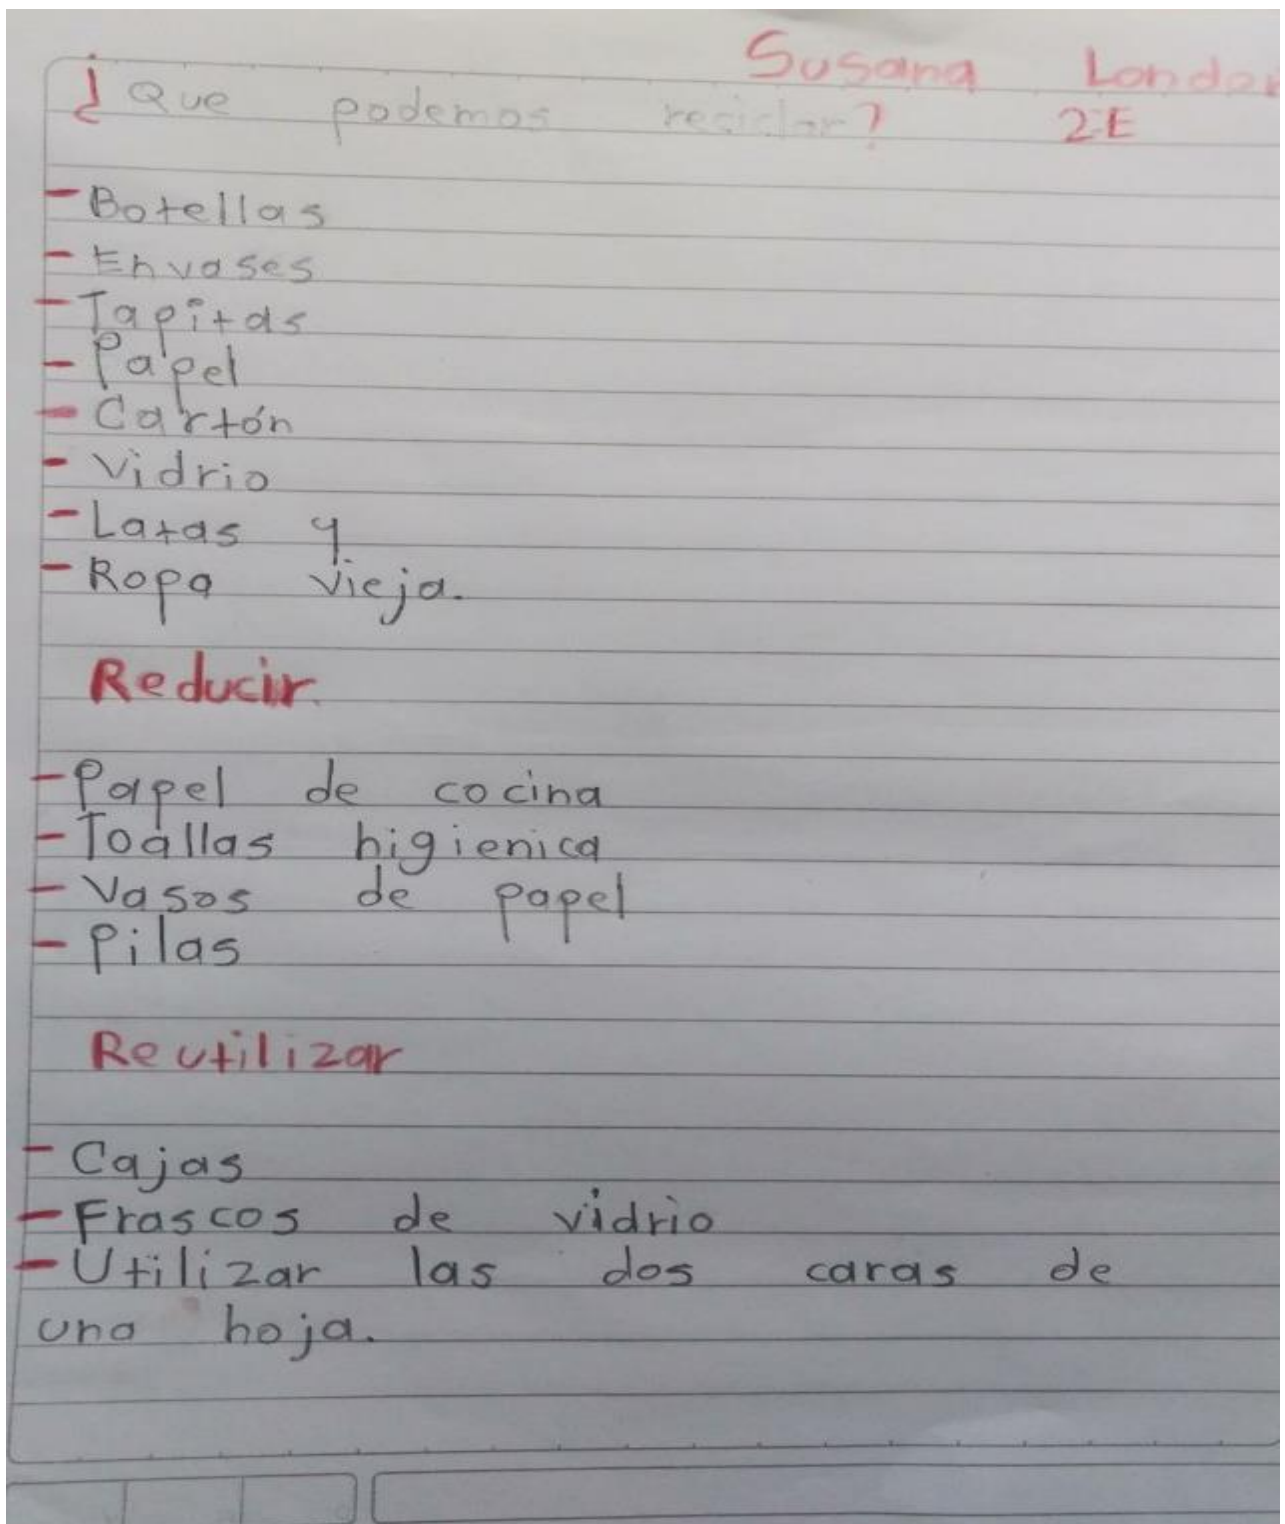 Susana
¿Que podemos reciclar? 2E
- Botellas
- Envases
- Tapitas
- Papel
- Cartón
- Vidrio
- Latas y
- Ropa vieja.
Reducir.
- Papel de cocina
- Toallas higienica
- Vasos de papel
- Pilas
Reutilizar
- Cajas
- Frascos de vidrio
- Utilizar las dos caras de
una hoja.